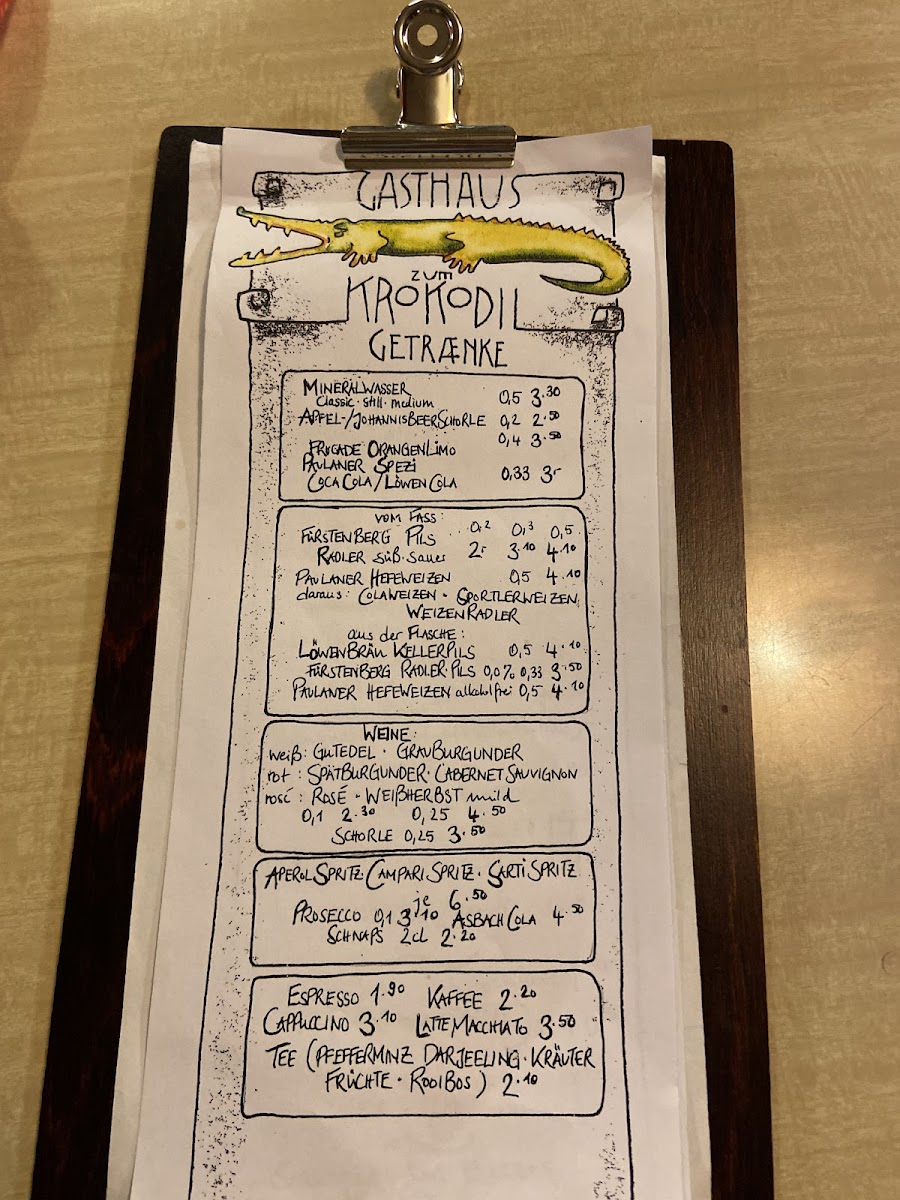 GASTHAUS
ZUM
KROKODIL
GETRÆNKE
MINERALWASSER 0,5 3.30
Classic · still · medium
APFEL-/JOHANNISBEERSCHORLE 0,2 2.50
0,4 3.50
FRUCADE ORANGENLIMO
PAULANER SPEZI
COCA COLA/LÖWEN COLA 0,33 3,-
VOM FASS: 0,2 0,3 0,5
FÜRSTENBERG PILS
RADLER süß·sauer 2,- 3.10 4.10
PAULANER HEFEWEIZEN 0,5 4.10
daraus: COLAWEIZEN · SPORTLERWEIZEN,
WEIZENRADLER
aus der FLASCHE:
LÖWENBRÄU KELLERPILS 0,5 4.10
FÜRSTENBERG RADLER·PILS 0,0% 0,33 3.50
PAULANER HEFEWEIZEN alkoholfrei 0,5 4.10
WEINE:
weiß: GUTEDEL · GRAUBURGUNDER
rot: SPÄTBURGUNDER · CABERNET SAUVIGNON
rosé: ROSÉ · WEIßHERBST mild
0,1 2.30 0,25 4.50
SCHORLE 0,25 3.50
APEROL SPRITZ · CAMPARI SPRITZ · SARTI SPRITZ
je 6.50
PROSECCO 0,1 3.10 ASBACH COLA 4.50
SCHNAPS 2cl 2.20
ESPRESSO 1.90 KAFFEE 2.20
CAPPUCCINO 3.10 LATTE MACCHIATO 3.50
TEE (PFEFFERMINZ DARJEELING · KRÄUTER
FRÜCHTE · ROOIBOS) 2.10